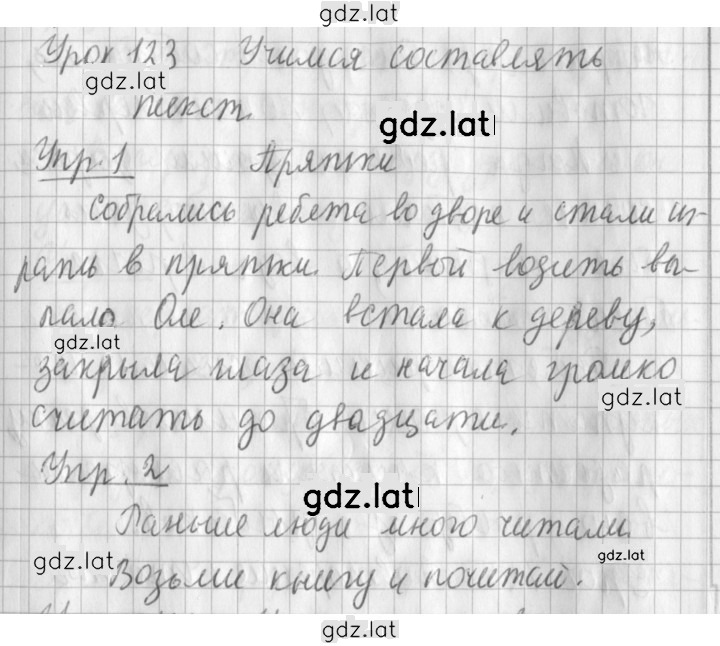 gdz.lat
Урок 123 Учимся составлять
gdz.lat
текст.
gdz.lat
Упр. 1 Прятки
Собрались ребята во дворе и стали иг-
рать в прятки. Первой водить вы-
пало Оле. Она встала к дереву,
gdz.lat
закрыла глаза и начала громко
gdz.lat
считать до двадцати.
Упр. 2
gdz.lat
Раньше люди много читали.
gdz.lat
gdz.lat
Возьми книгу и почитай.
gdz.lat